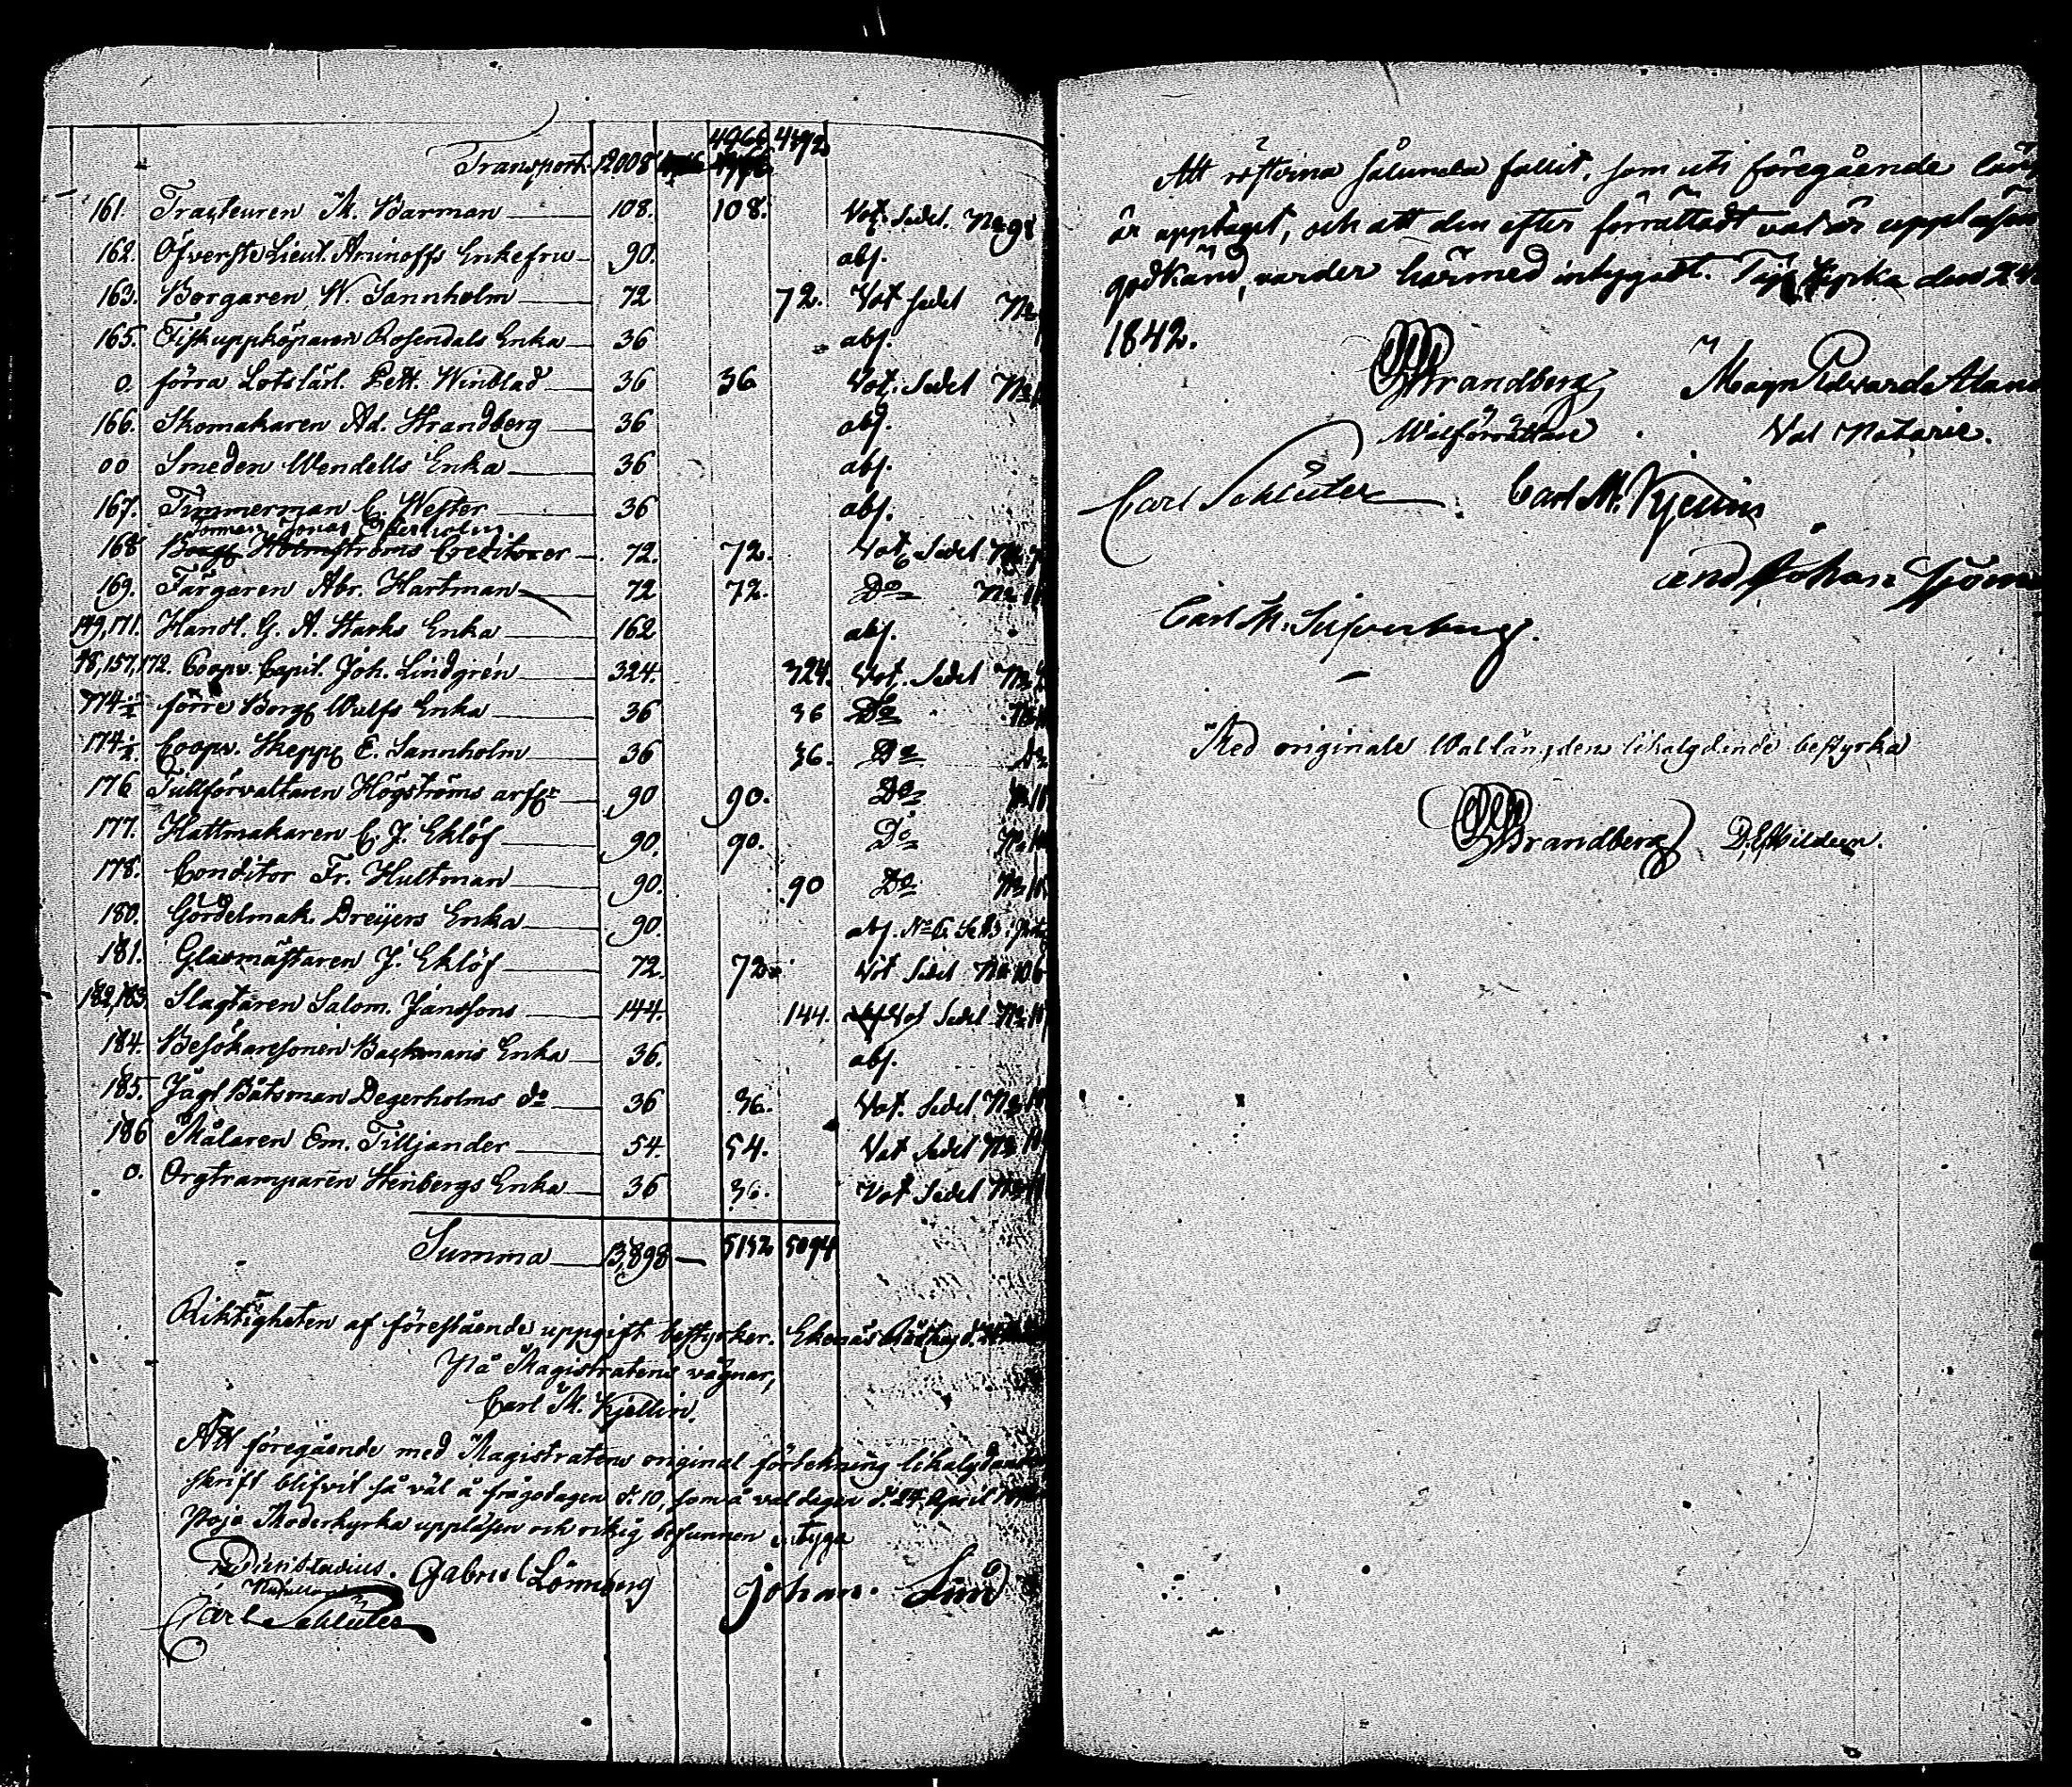 4966 4492
Transport 12008
161. Tracteuren M. Barman 108. 108. Vot. Sedel. No 98
162. Öfverste Lieut. Arinoffs Enkefru 90. abs.
163. Borgaren W. Sannholm 72 72. Vot Sedel No
165. Fiskuppköparen Rosendals Enka 36 abs.
0. förra Lotslärl. Pett. Winblad 36 36 Vot. Sedel No
166. Skomakaren Ad. Strandberg 36 abs.
00 Smeden Wendells Enka 36 abs.
167. Timmerman C. Wester 36 abs.
Jonas
168 Borg. Holmströms Creditorer 72. 72. Vot. Sedel No
169. Färgaren Abr. Hartman 72 72. Do No
149, 171. Handl. G. A. Starks Enka 162 abs.
98, 157, 172. Coopv. Capit. Joh. Lindgrén 324. 324. Vot. Sedel No
174 1/2 förre Borg. Wulfs Enka 36 36 Do No
174 1/2. Coopv. Skepp. E. Sannholm 36 36. Do Do
176 Tullförvaltaren Högströms arf. 90 90. Do
177. Hattmakaren C. J. Eklöf 90. 90. Do No
178. Conditor Fr. Hultman 90. 90 Do No
180. Gördelmak. Dreijers Enka 90. abs. No 6.
181. Glasmästaren J. Eklöf 72. 72. Vot Sedel No 106
182, 183 Slagtaren Salom. Janssons 144. 144. Vot Sedel No
184. Besökaresonen Backmans Enka 36. abs.
185. Jägt Båtsman Degerholms do 36 36. Vot. Sedel No
186 Målaren Em. Tilljander 54 54. Vot Sedel No
0. Orgtramparen Stenbergs Enka 36 36. Vot Sedel No
Summa 13,898 — 5132 5094
Riktigheten af förestående uppgift bestyrker. Ekenäs
På Magistratens vägnar,
Carl M. Kjellin.
Att föregående med Magistratens original förtekning likalydande
skrift blifvit så väl å frågodagen d. 10, som å valdagen d. 24 April
Pojo Moderkyrka uppläsen och riktig befunnen intyga
Gabriel Lönnberg Johan Lind
Carl Schlüter
Att rösterna sålunda fallit, som uti föregående
är upptaget, och att den efter förrättadt val är uppläsen
godkänd, varder härmed intygadt. Kyrka den 24
1842.
Strandberg Magn Edvard
Valförrättare. Val Notarie.
Carl Schlüter Carl M. Kjellin
Johan
Carl M.
Med originale Vallängden likalydande bestyrka
Strandberg